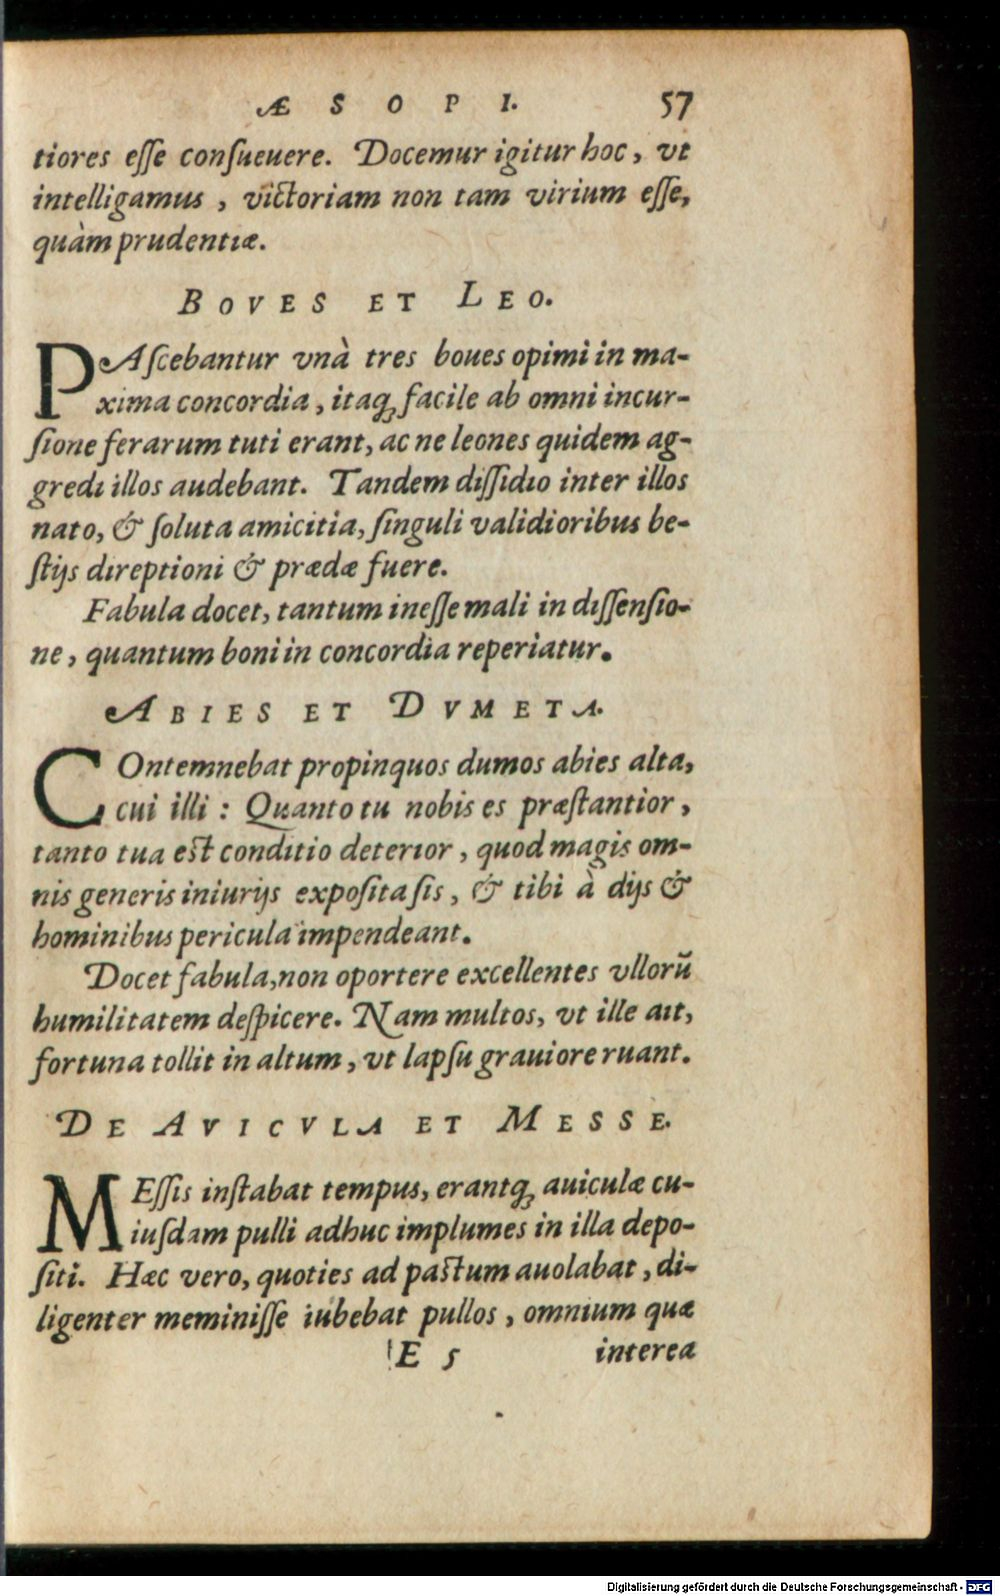 ÆSOPI. 57
tiores eſſe conſueuere. Docemur igitur hoc, vt
intelligamus, victoriam non tam virium eſſe,
quàm prudentiæ.
BOVES ET LEO.
PAſcebantur vnà tres boues opimi in ma-
xima concordia, itaq; facile ab omni incur-
ſione ferarum tuti erant, ac ne leones quidem ag-
gredi illos audebant. Tandem diſſidio inter illos
nato, & ſoluta amicitia, ſinguli validioribus be-
ſtijs direptioni & prædæ fuere.
Fabula docet, tantum ineſſe mali in diſſenſio-
ne, quantum boni in concordia reperiatur.
ABIES ET DVMETA.
COntemnebat propinquos dumos abies alta,
cui illi: Quanto tu nobis es præſtantior,
tanto tua est conditio deterior, quod magis om-
nis generis iniurijs expoſita ſis, & tibi à dijs &
hominibus pericula impendeant.
Docet fabula, non oportere excellentes vllorũ
humilitatem deſpicere. Nam multos, vt ille ait,
fortuna tollit in altum, vt lapſu grauiore ruant.
DE AVICVLA ET MESSE.
MEſſis inſtabat tempus, erantq; auiculæ cu-
iuſdam pulli adhuc implumes in illa depo-
ſiti. Hæc vero, quoties ad pastum auolabat, di-
ligenter meminiſſe iubebat pullos, omnium quæ
E 5 interea
Digitalisierung gefördert durch die Deutsche Forschungsgemeinschaft - DFG